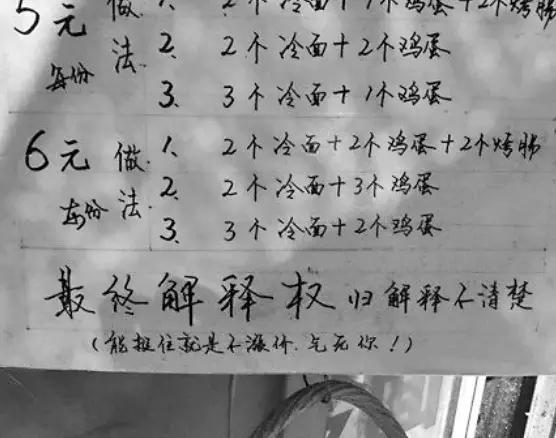 5元 做 1. 2个冷面+1个鸡蛋+2个烤肠
每份 法 2. 2个冷面+2个鸡蛋
3. 3个冷面+1个鸡蛋
6元 做. 1. 2个冷面+2个鸡蛋+2个烤肠
每份 法 2. 2个冷面+3个鸡蛋
3. 3个冷面+2个鸡蛋
最终解释权归解释不清楚
(能挺住就是不涨价.气死你!)